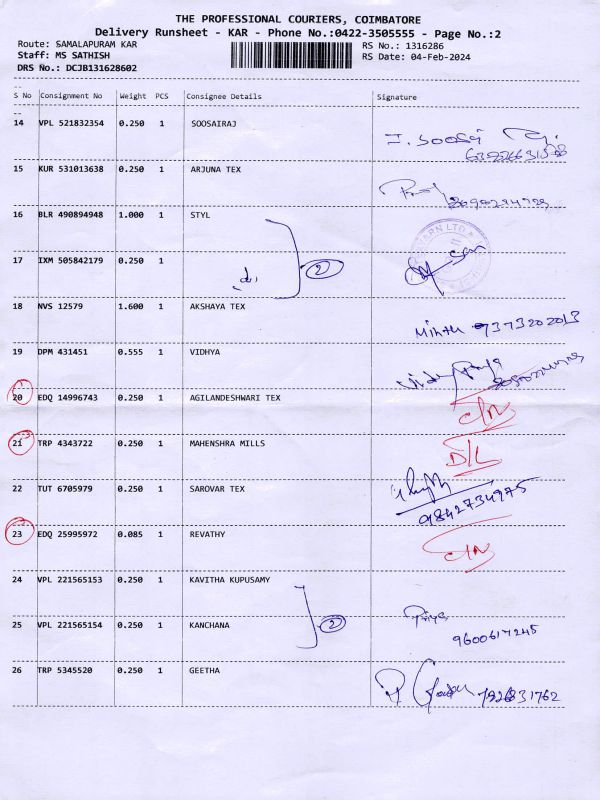 THE PROFESSIONAL COURIERS, COIMBATORE
Delivery Runsheet - KAR - Phone No.:0422-3505555 - Page No.:2
Route: SAMALAPURAM KAR
RS No.: 1316286
Staff: MS SATHISH
RS Date: 04-Feb-2024
DRS No.: DCJB131628602
S No Consignment No Weight PCS Consignee Details Signature
14 VPL 521832354 0.250 1 SOOSAIRAJ
15 KUR 531013638 0.250 1 ARJUNA TEX
16 BLR 490894948 1.000 1 STYL
YARN LTD
17 IXM 505842179 0.250 1 2
18 NVS 12579 1.600 1 AKSHAYA TEX
9373202013
19 DPM 431451 0.555 1 VIDHYA
20 EDQ 14996743 0.250 1 AGILANDESHWARI TEX
C/N
21 TRP 4343722 0.250 1 MAHENSHRA MILLS
D/L
22 TUT 6705979 0.250 1 SAROVAR TEX
9842734975
23 EDQ 25995972 0.085 1 REVATHY
C/N
24 VPL 221565153 0.250 1 KAVITHA KUPUSAMY
25 VPL 221565154 0.250 1 KANCHANA 2 Priya
9600617245
26 TRP 5345520 0.250 1 GEETHA